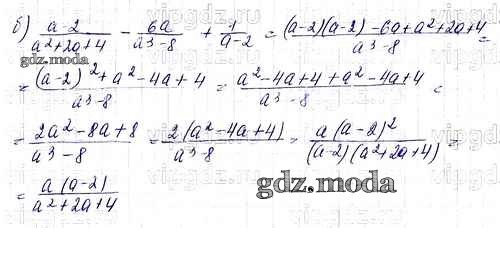 б) (a-2)/(a²+2a+4) - 6a/(a³-8) + 1/(a-2) = ((a-2)(a-2) - 6a + a² + 2a + 4)/(a³-8) =
= ((a-2)² + a² - 4a + 4)/(a³-8) = (a² - 4a + 4 + a² - 4a + 4)/(a³-8) =
= (2a² - 8a + 8)/(a³-8) = 2(a² - 4a + 4)/(a³-8) = a(a-2)²/((a-2)(a²+2a+4)) =
= a(a-2)/(a²+2a+4)
gdz.moda
gdz.moda